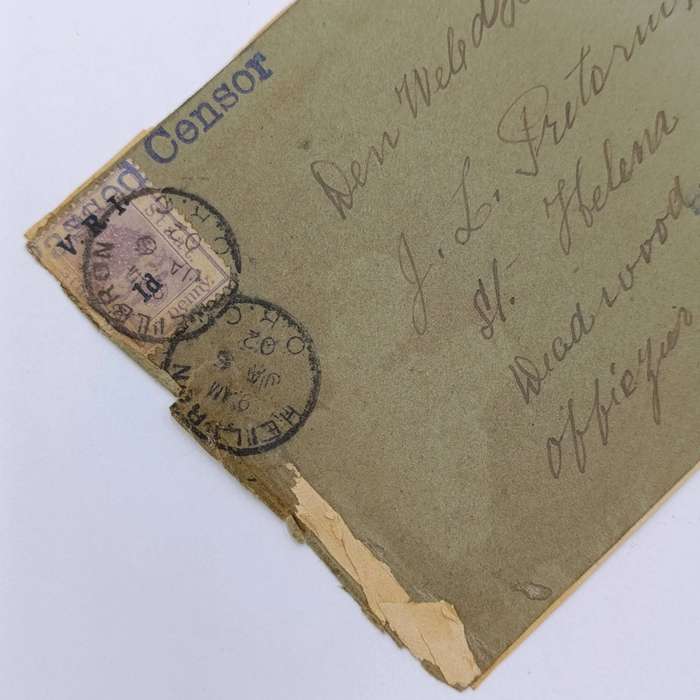 assed Censor
V. R. I.
1d
Penny.
HEILBRON
O. R. C.
JA 6
02
HEILBRON
9 AM
JA 6
02
O. R. C.
Den Weled
J. L. Pretorius
St. Helena
Deadwood
Offiezier